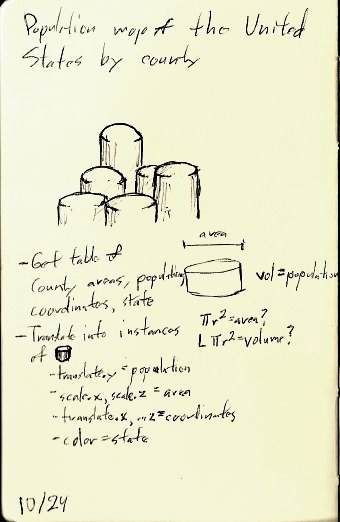 Population map of the United
States by county
area
- Get table of
county areas, population,
coordinates, state
vol = population
πr² = area?
L πr² = volume?
- Translate into instances
of
- translate.y = population
- scale.x, scale.z = area
- translate.x, .z = coordinates
- color = state
10/24